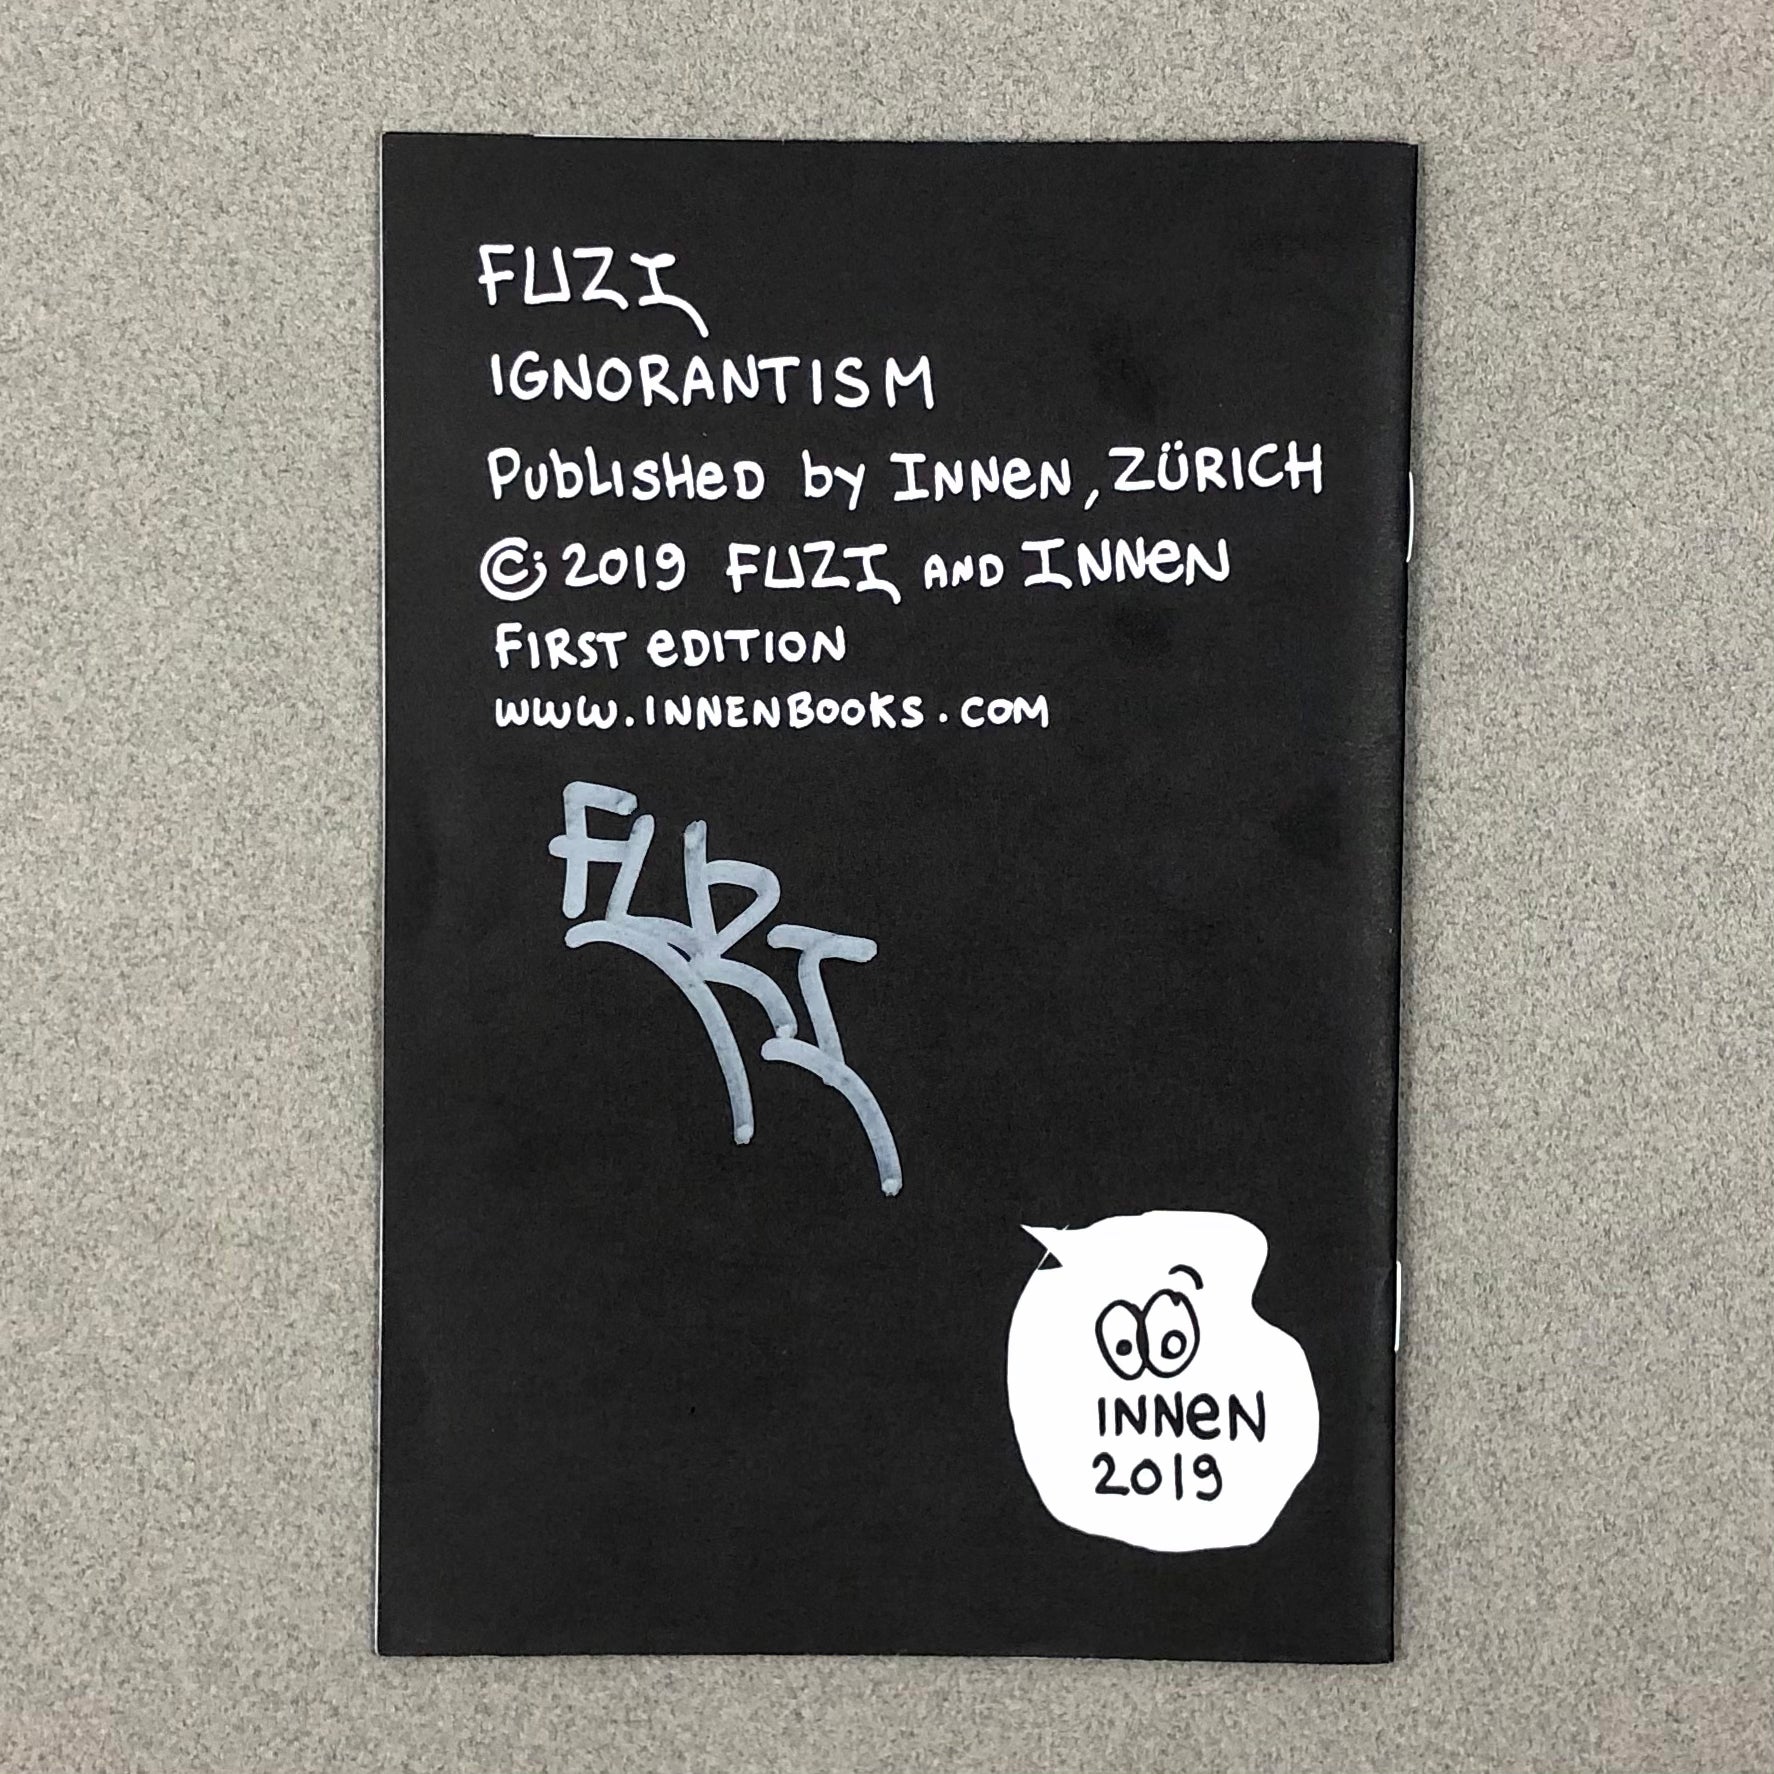 FUZI
IGNORANTISM
PUBLISHED by INNEN, ZÜRICH
© 2019 FUZI AND INNEN
FIRST EDITION
WWW.INNENBOOKS.COM
INNEN
2019